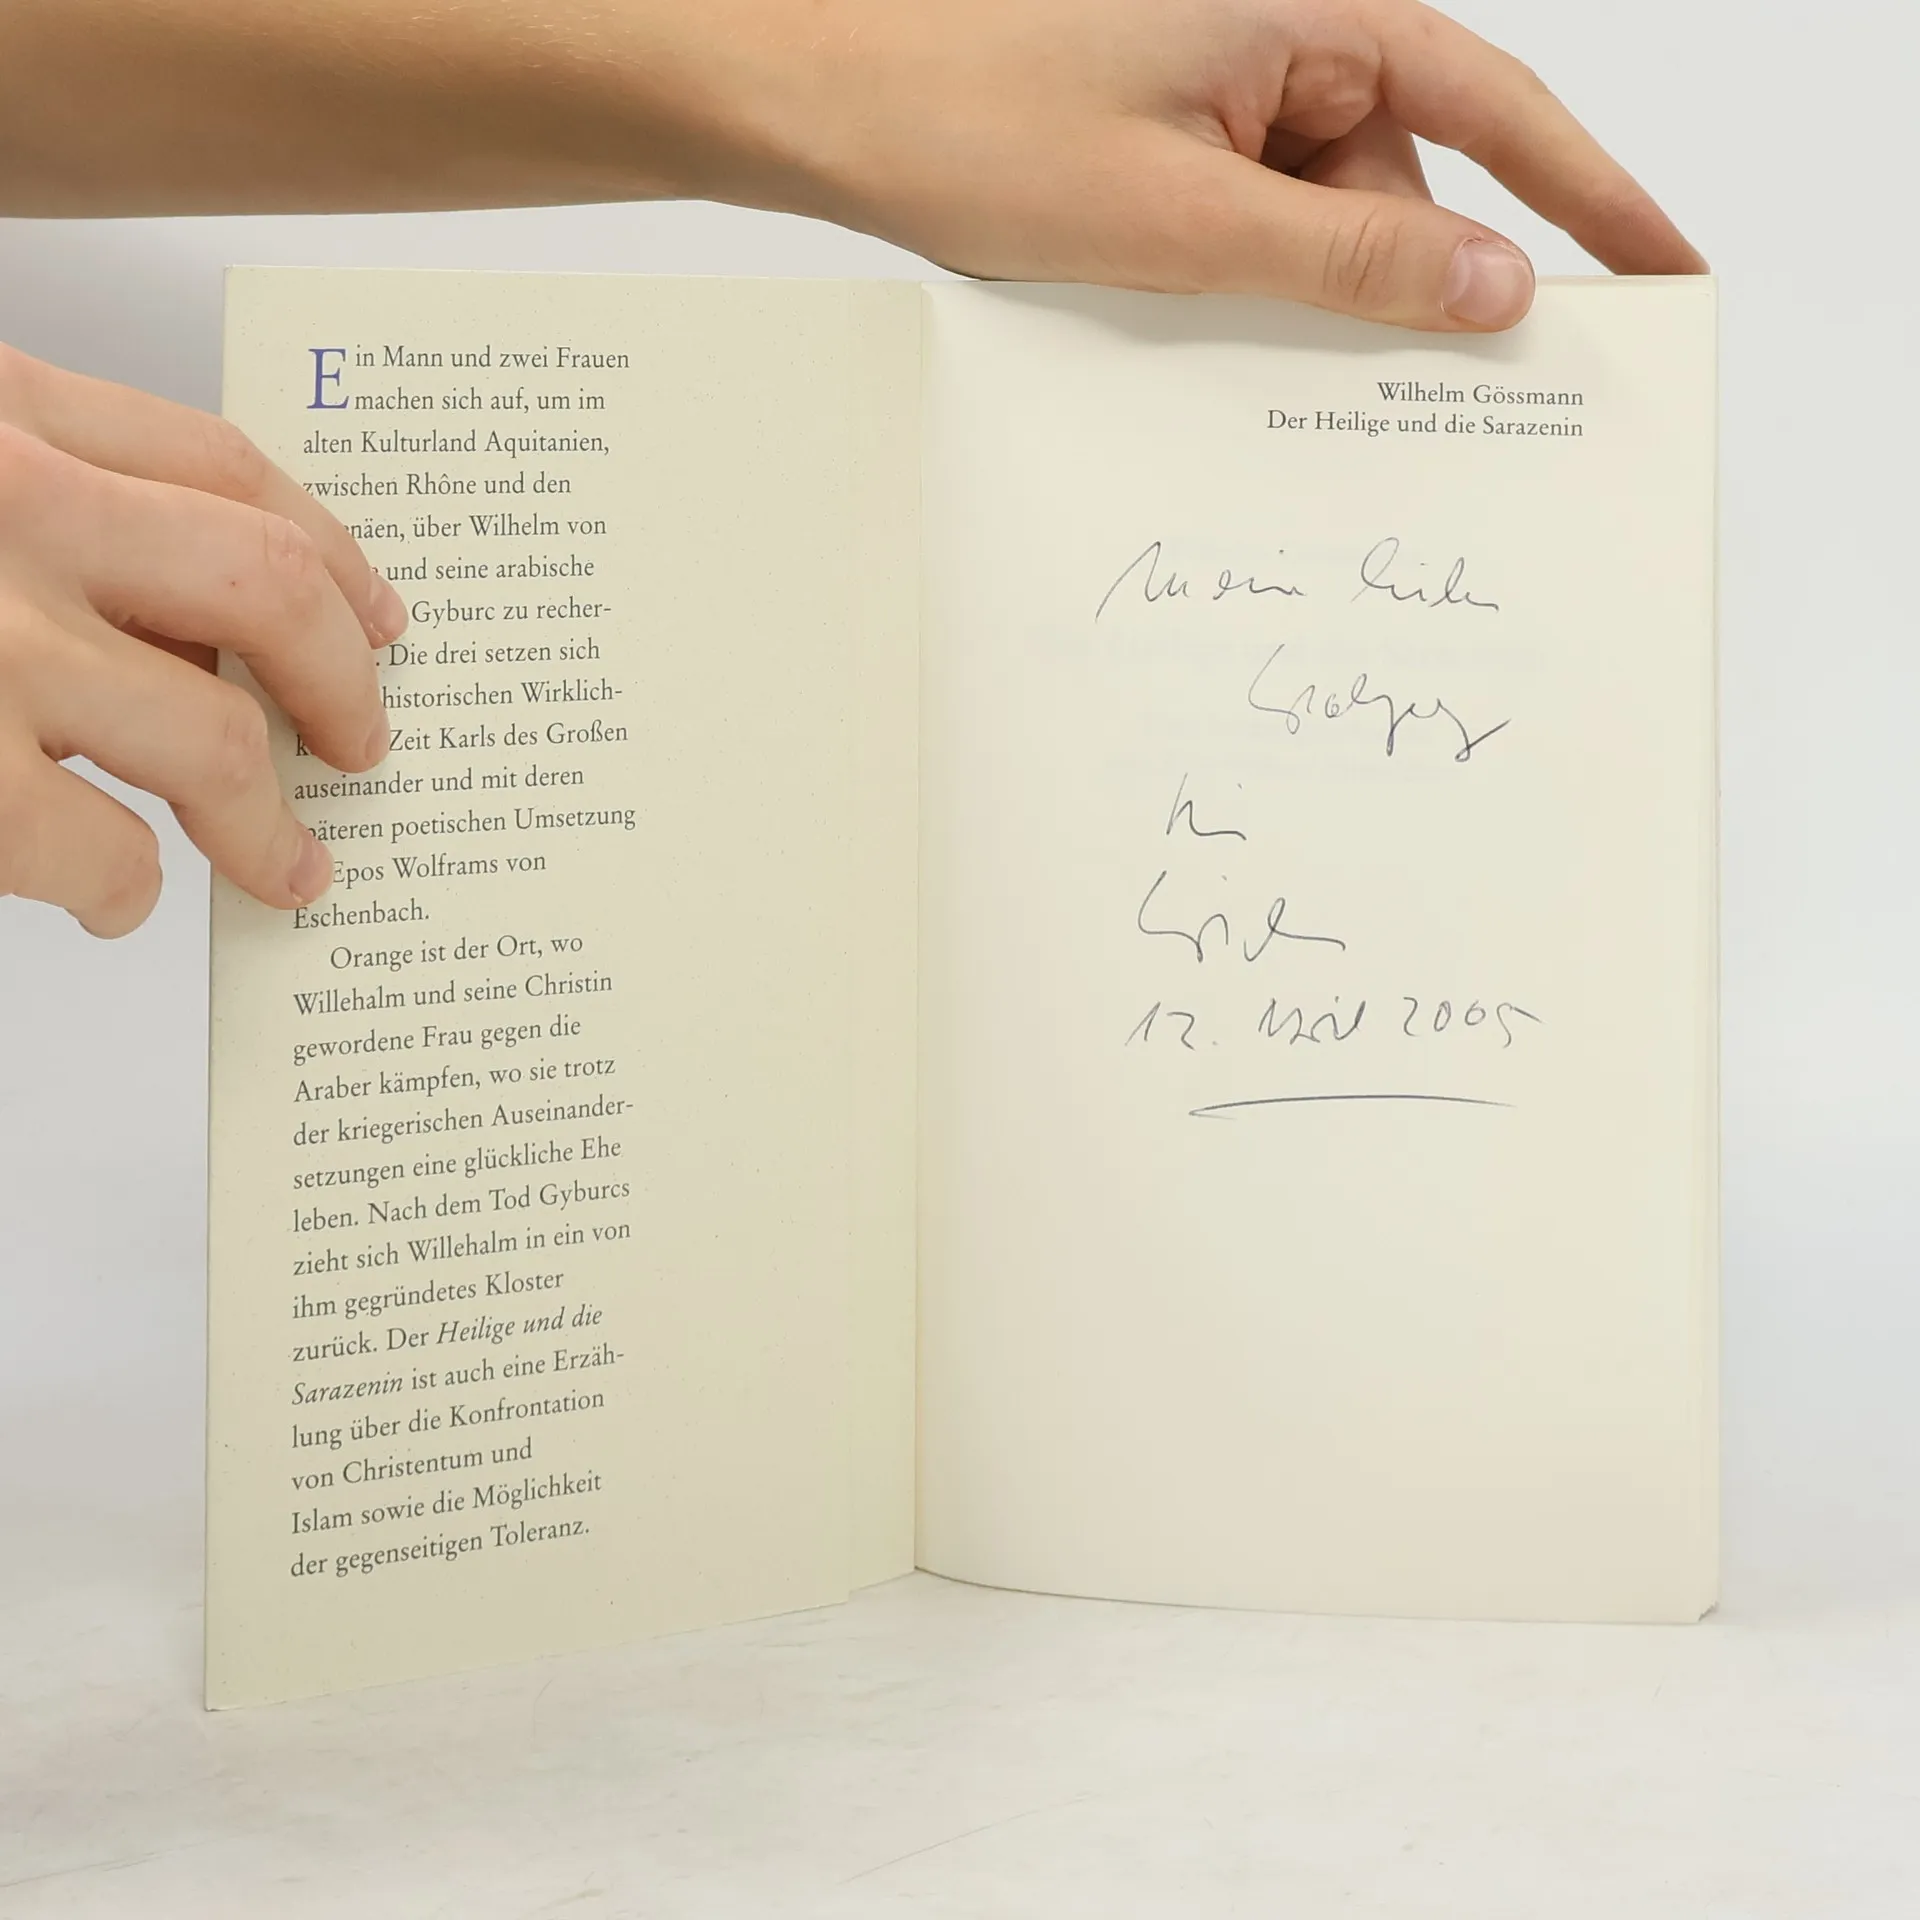 Ein Mann und zwei Frauen
machen sich auf, um im
alten Kulturland Aquitanien,
zwischen Rhône und den
näen, über Wilhelm von
und seine arabische
Gyburc zu recher-
. Die drei setzen sich
historischen Wirklich-
k Zeit Karls des Großen
auseinander und mit deren
päteren poetischen Umsetzung
Epos Wolframs von
Eschenbach.
Orange ist der Ort, wo
Willehalm und seine Christin
gewordene Frau gegen die
Araber kämpfen, wo sie trotz
der kriegerischen Auseinander-
setzungen eine glückliche Ehe
leben. Nach dem Tod Gyburcs
zieht sich Willehalm in ein von
ihm gegründetes Kloster
zurück. Der Heilige und die
Sarazenin ist auch eine Erzäh-
lung über die Konfrontation
von Christentum und
Islam sowie die Möglichkeit
der gegenseitigen Toleranz.
Wilhelm Gössmann
Der Heilige und die Sarazenin
Mein
12. April 2005